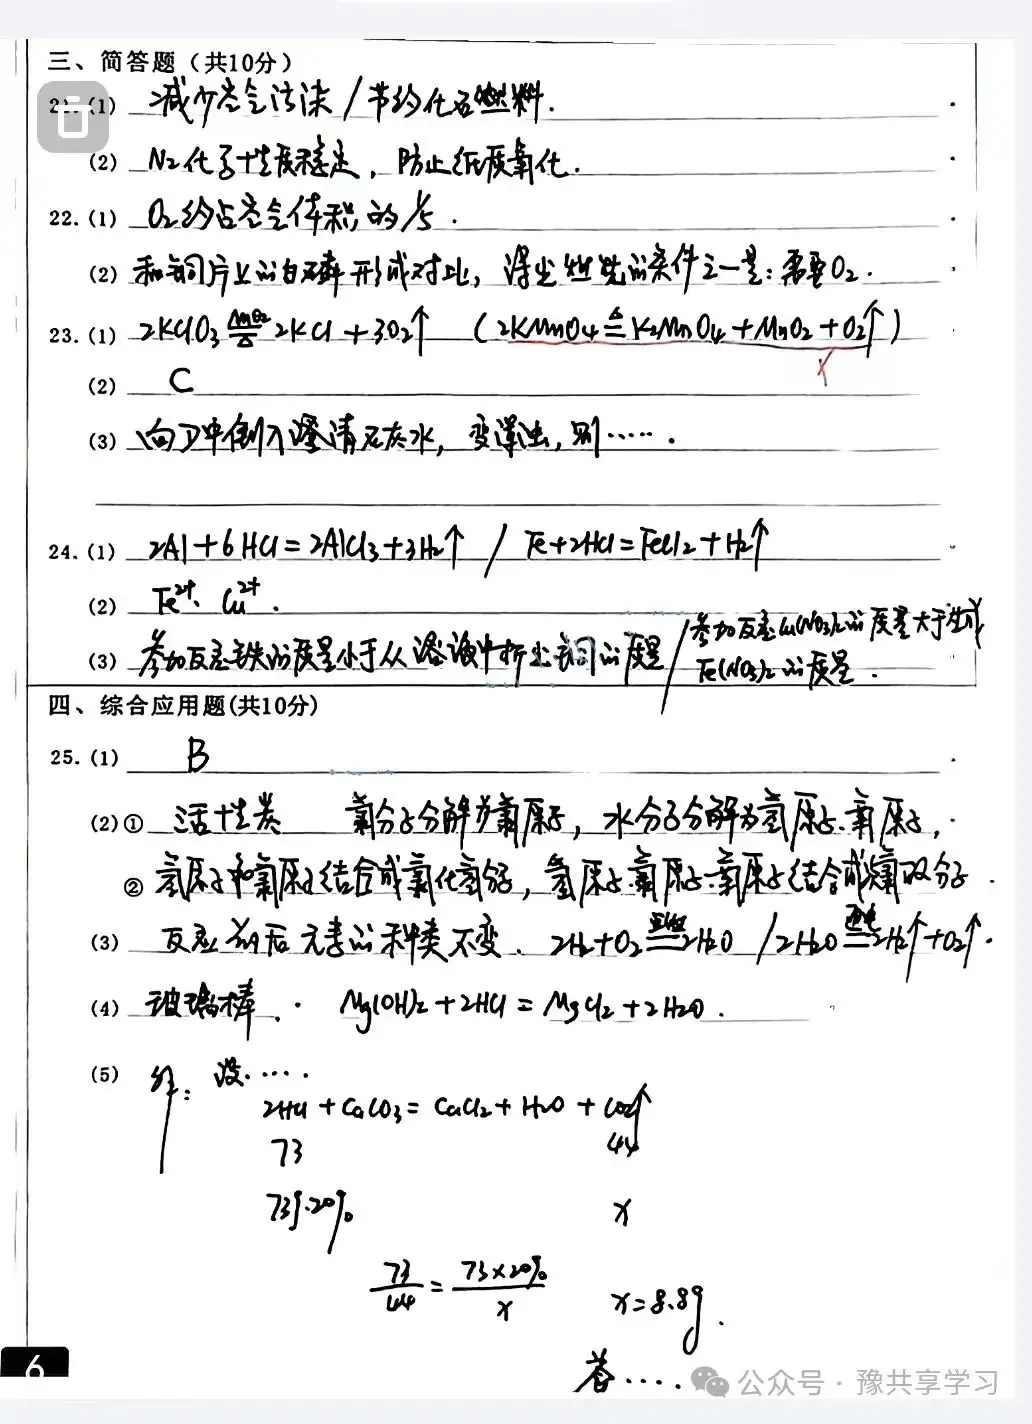 三、简答题（共10分）
21.(1) 减少空气污染/节约化石燃料.
(2) N2化学性质稳定，防止纸质氧化.
22.(1) O2约占空气体积的1/5.
(2) 和铜片上的白磷形成对比，得出燃烧的条件之一是：需要O2.
23.(1) 2KClO3 MnO2 △ 2KCl+3O2↑ (2KMnO4 △ K2MnO4+MnO2+O2↑)
(2) C
(3) 向D中倒入澄清石灰水，变浑浊，则…….
24.(1) 2Al+6HCl=2AlCl3+3H2↑ / Fe+2HCl=FeCl2+H2↑
(2) Fe2+、Cu2+.
(3) 参加反应铁的质量小于从溶液中析出铜的质量/参加反应Cu(NO3)2的质量大于生成
Fe(NO3)2的质量.
四、综合应用题(共10分)
25.(1) B
(2)① 活性炭 氯分子分解为氯原子，水分子分解为氢原子.氧原子，
② 氢原子和氯原子结合成氯化氢分子，氢原子.氯原子.氧原子结合成次氯酸分子
(3) 反应前后元素的种类不变. 2H2+O2 点燃 2H2O /2H2O 通电 2H2↑+O2↑.
(4) 玻璃棒. Mg(OH)2+2HCl=MgCl2+2H2O.
(5) 解：设.….
2HCl+CaCO3=CaCl2+H2O+CO2↑
73 44
73g·20% x
73/44=73×20%/x x=8.8g.
答….
6
公众号·豫共享学习